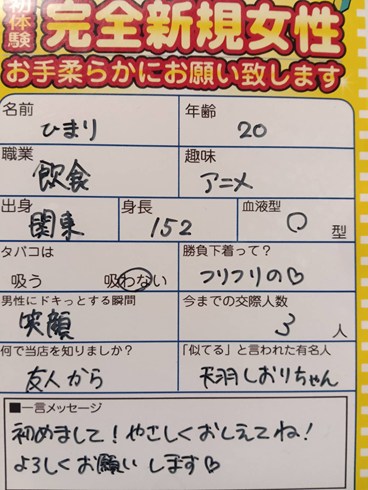 初体験 完全新規女性
お手柔らかにお願い致します
名前 ひまり 年齢 20
職業 飲食 趣味 アニメ
出身 関東 身長 152 血液型 O 型
タバコは 吸う 吸わない 勝負下着って? フリフリの♡
男性にドキっとする瞬間 笑顔 今までの交際人数 3 人
何で当店を知りましたか? 友人から 「似てる」と言われた有名人 天羽しおりちゃん
■一言メッセージ
初めまして!やさしくおしえてね!
よろしくお願いします♡